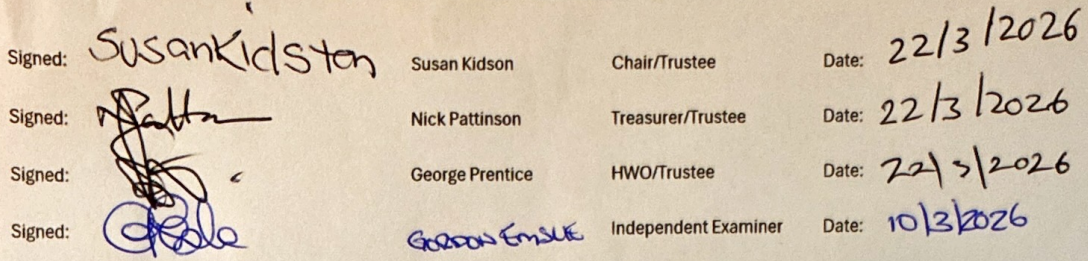 Signed: SusanKidston Susan Kidson Chair/Trustee Date: 22/3/2026
Signed: Nick Pattinson Treasurer/Trustee Date: 22/3/2026
Signed: George Prentice HWO/Trustee Date: 22/3/2026
Signed: GORDON EMSLIE Independent Examiner Date: 10/3/2026